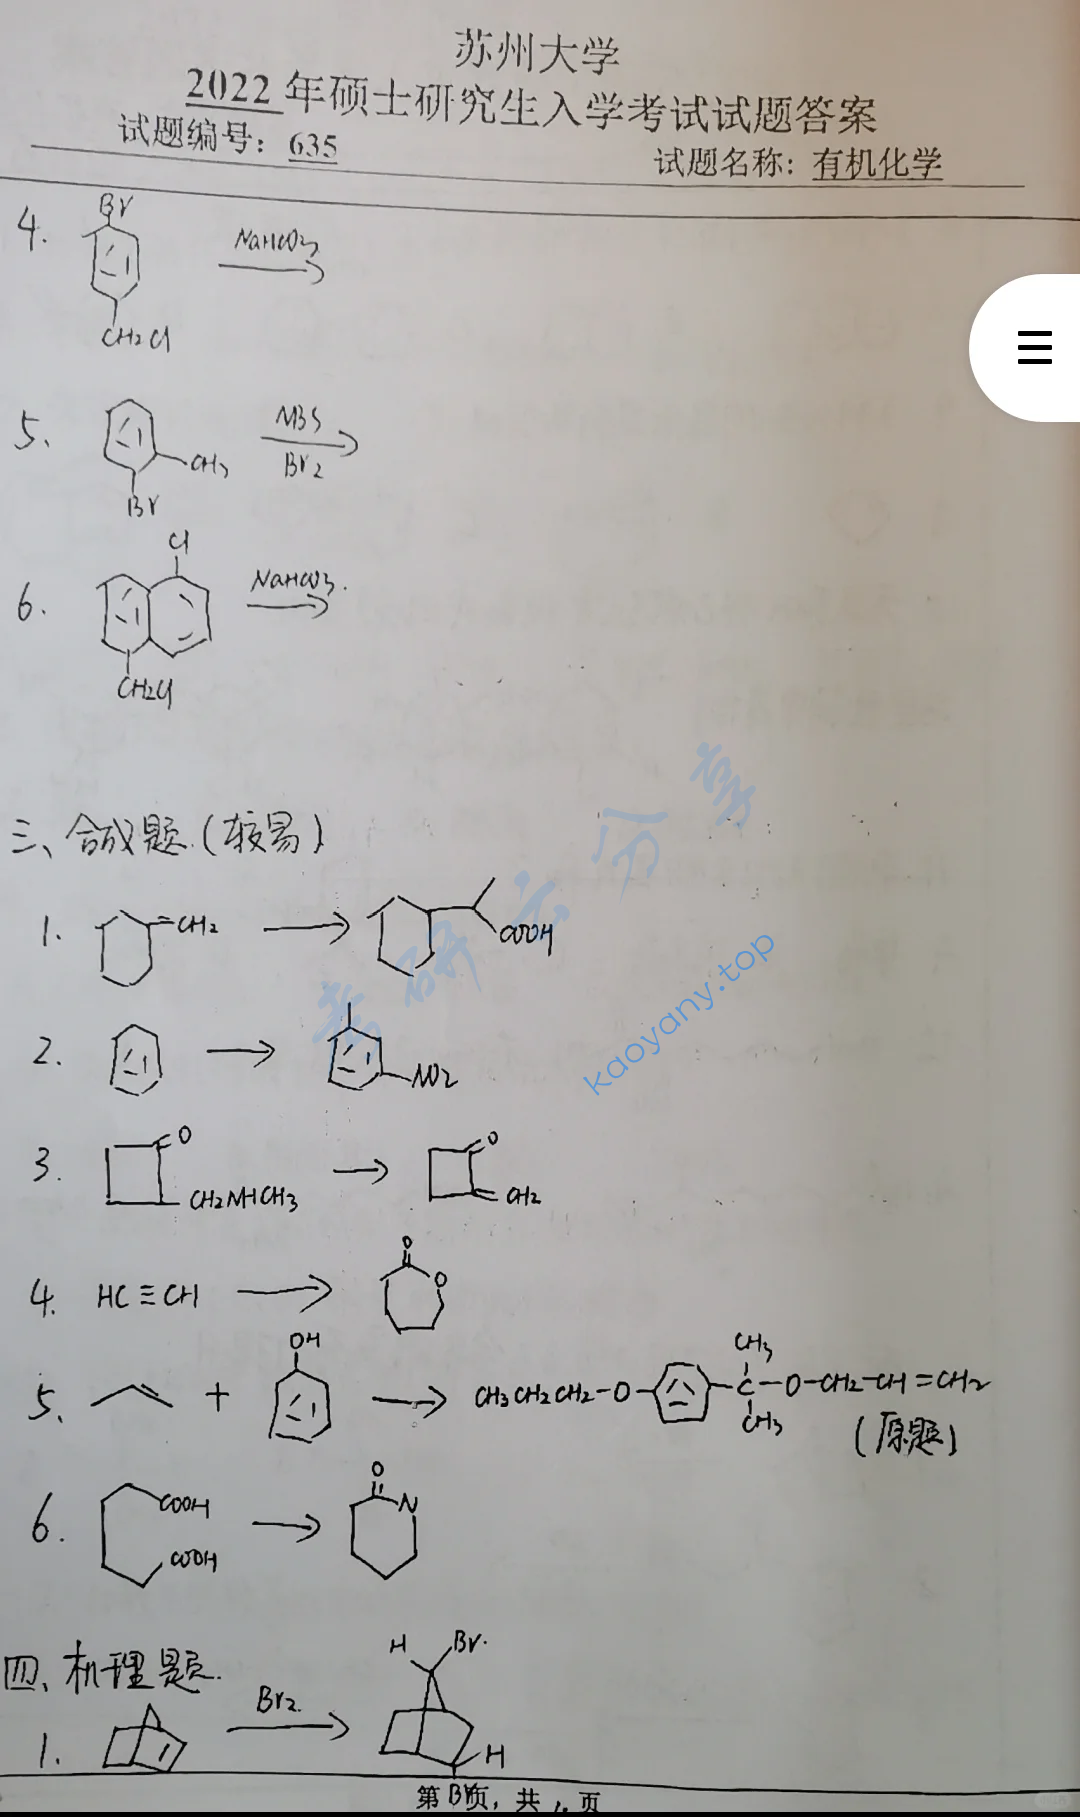 苏州大学
2022年硕士研究生入学考试试题答案
试题编号：635
试题名称：有机化学
4.
Br
NaHCO3
CH2Cl
5、
NBS
CH3
Br2
Br
Cl
6.
NaHCO3.
CH2Cl
三、合成题.(较易)
1.
=CH2
COOH
2.
NO2
3.
O
O
CH2NHCH3
CH2
4.
HC≡CH
O
O
5、
+
OH
CH3CH2CH2-O-
CH3
-C-O-CH2-CH=CH2
CH3
(原题)
6.
COOH
COOH
O
N
四、机理题.
H
Br.
Br2.
1.
H
Br
第 页，共 页
考研云分享
kaoyany.top